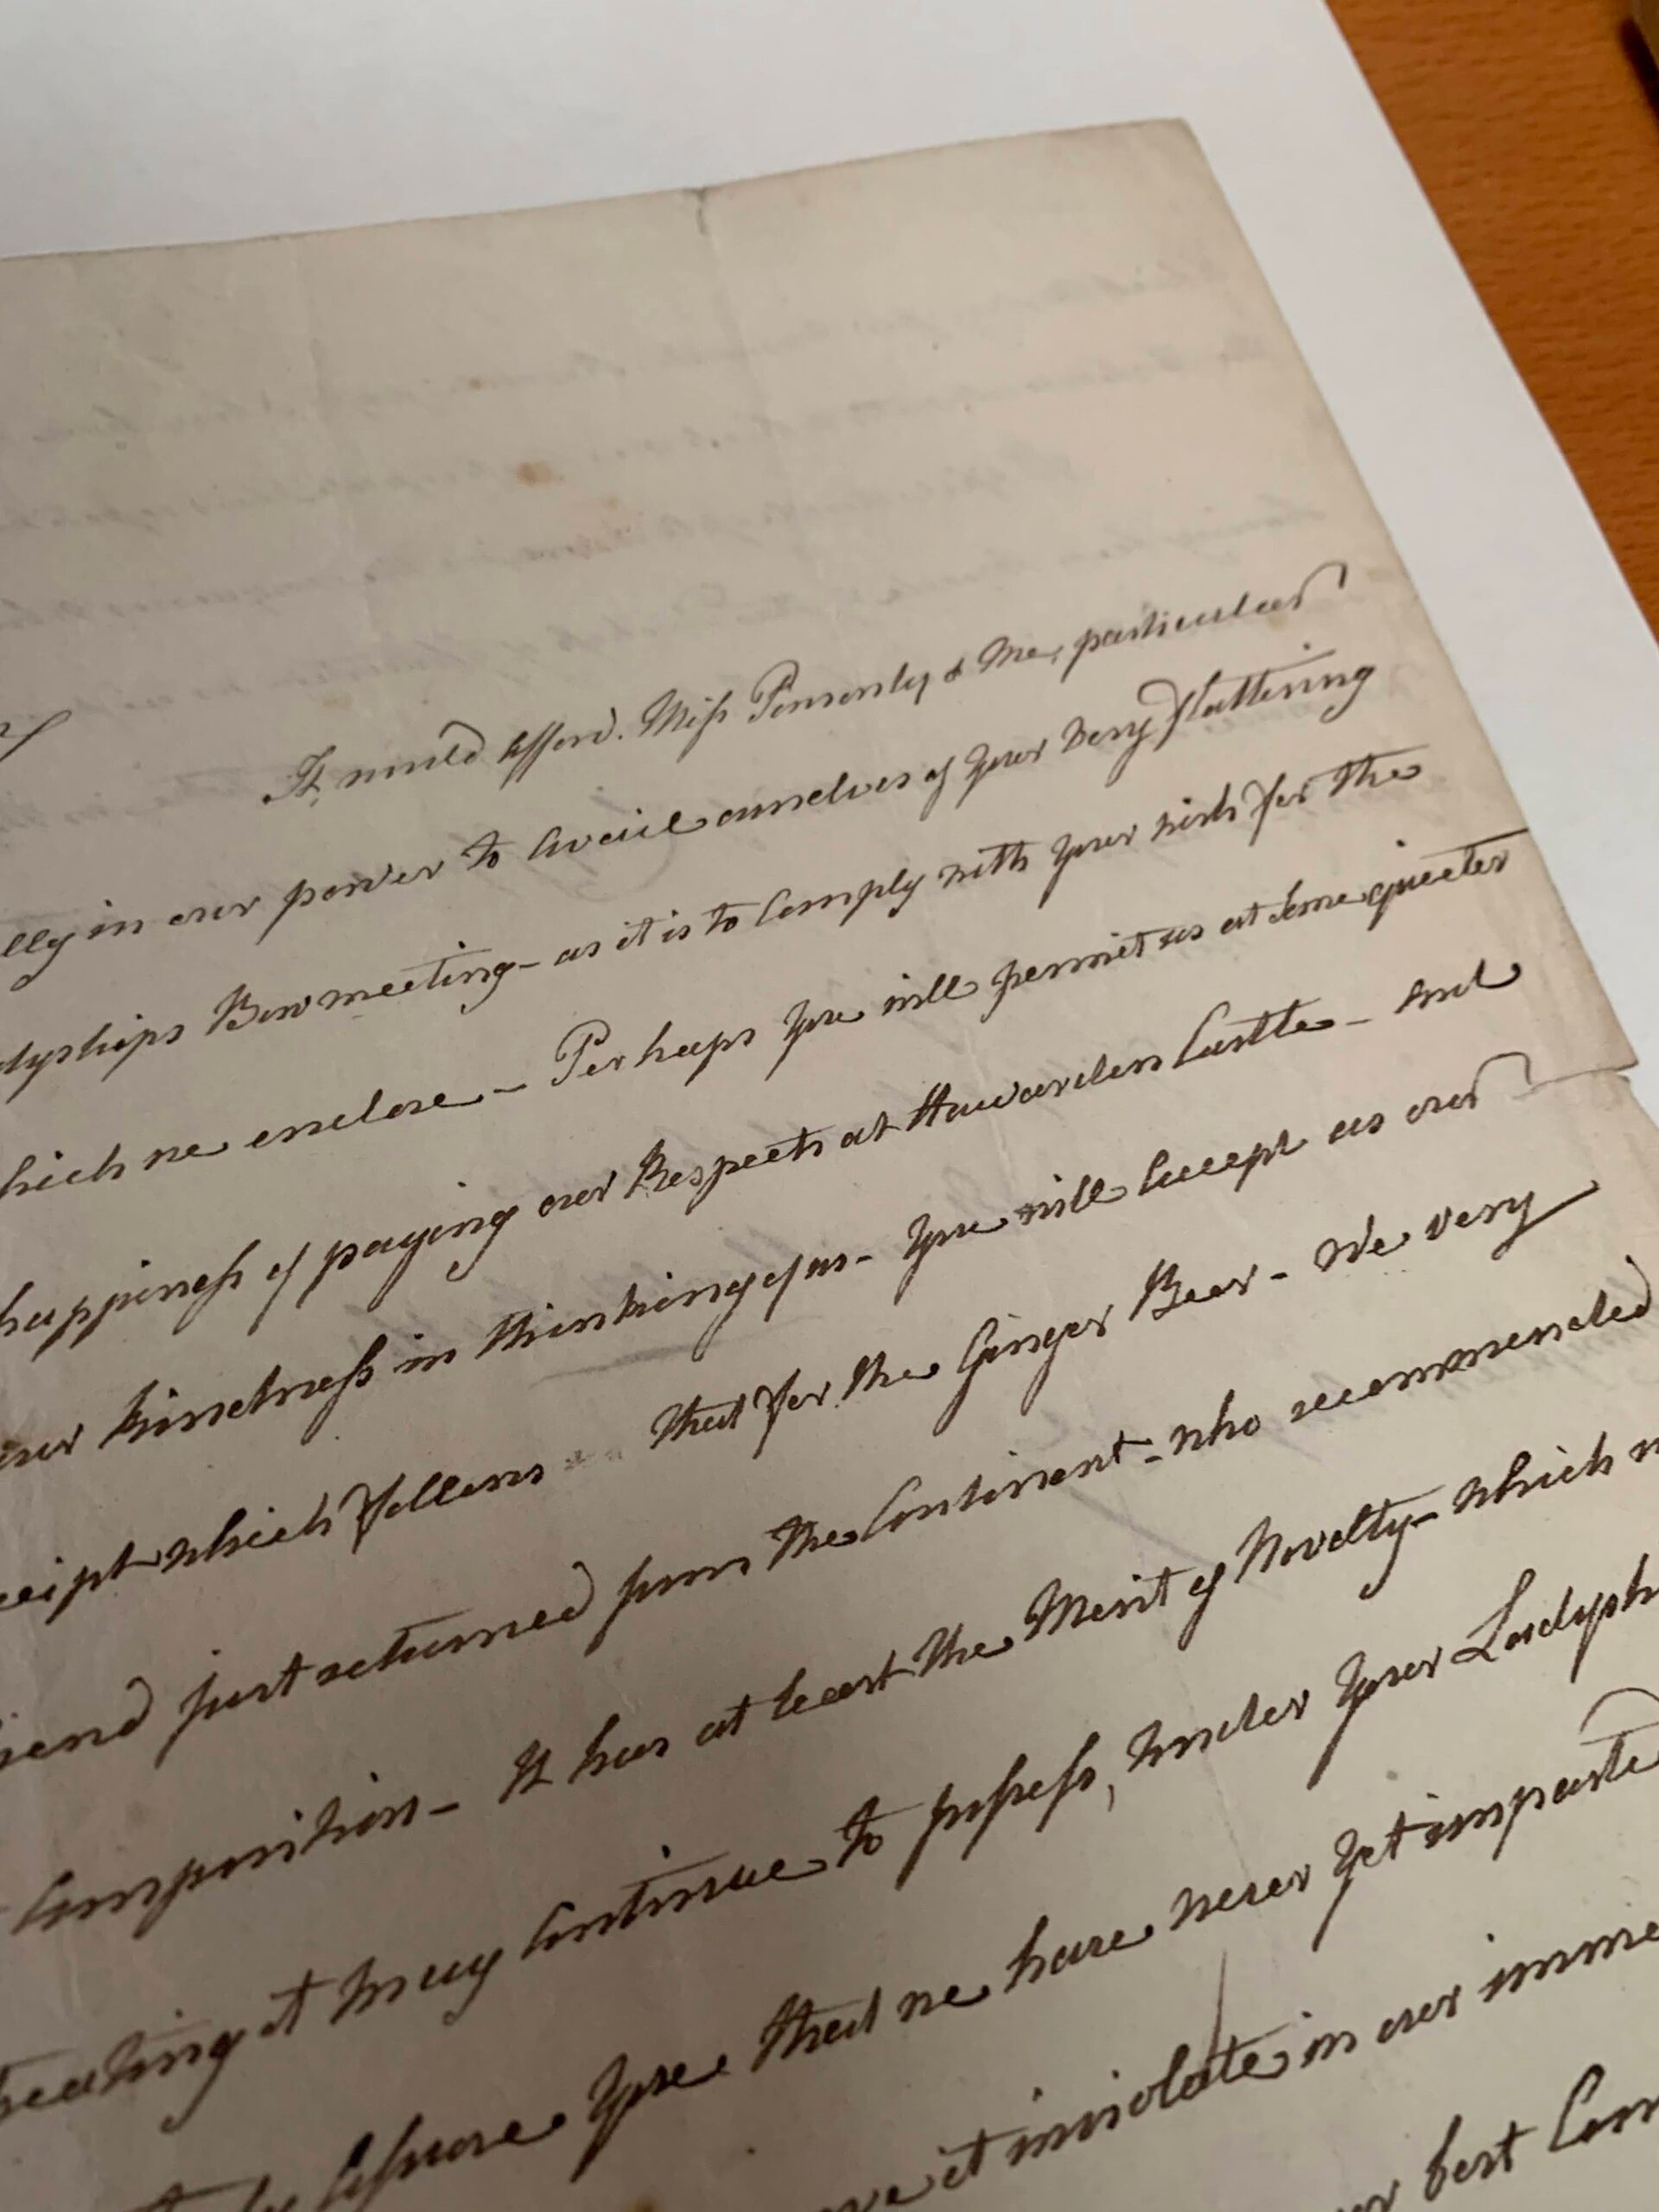 It would afford. Miſs Ponsonby & Me, particular
lly in our power to avail ourselves of Your Very flattering
dyships Bow meeting - as it is to Comply with Your wish for the
hich we enclose - Perhaps You will permit us at Some quieter
happineſs of paying our Respects at Hawarden Castle - And
our kindneſs in thinking of us - You will Accept as our
ceipt which follows that for the Ginger Beer - We very
iend just returned from the Continent - who recommended
Composition - It has at least the Merit of Novelty - which w
treating it may Continue to poſseſs, Under Your Ladysh
Aſsure You that we have never Yet imparte
ve it inviolate in our imme
r best Com